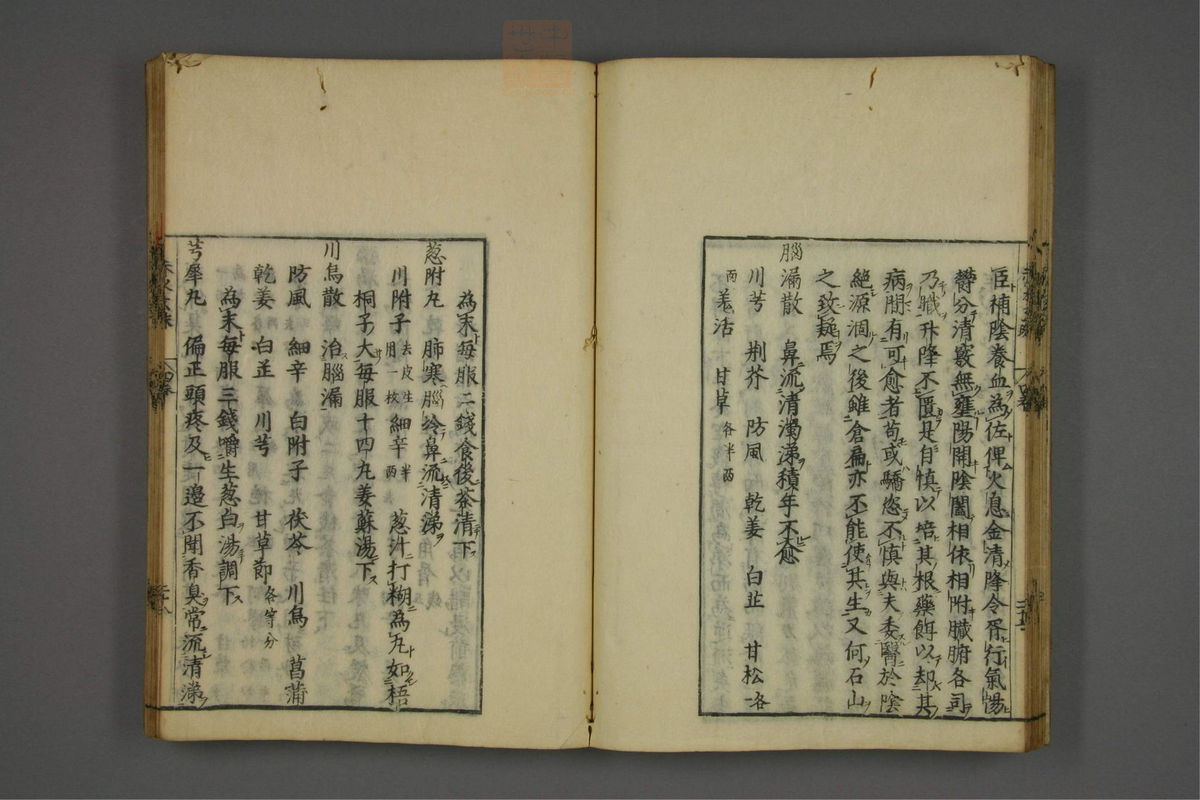 臣補陰養血為佐俾火息金清降令胥行氣陽
欝分清竅無壅陽開陰闔相依相附臓腑各司
乃職升降不匱是自慎以培其根藥餌以却其
病間有可愈者苟或驕恣不慎與夫委醫於陰
絶源涸之後雖倉扁亦不能使其生又何石山
之致疑焉
腦漏散　鼻流清濁涕積年不愈
川芎　荆芥　防風　乾姜　白芷　甘松各
兩　羗活　甘草各半兩
為末毎服二錢食後茶清下
葱附丸　肺寒腦冷鼻流清涕
川附子去皮生用一枚　細辛半兩　葱汁打糊為丸如梧
桐子大毎服十四丸姜蘇湯下
川烏散　治腦漏
防風　細辛　白附子　茯苓　川烏　菖蒲
乾姜　白芷　川芎　甘草節各等分
為末毎服三錢嚼生葱白湯調下
芎犀丸　偏正頭疼及一邉不聞香臭常流清涕